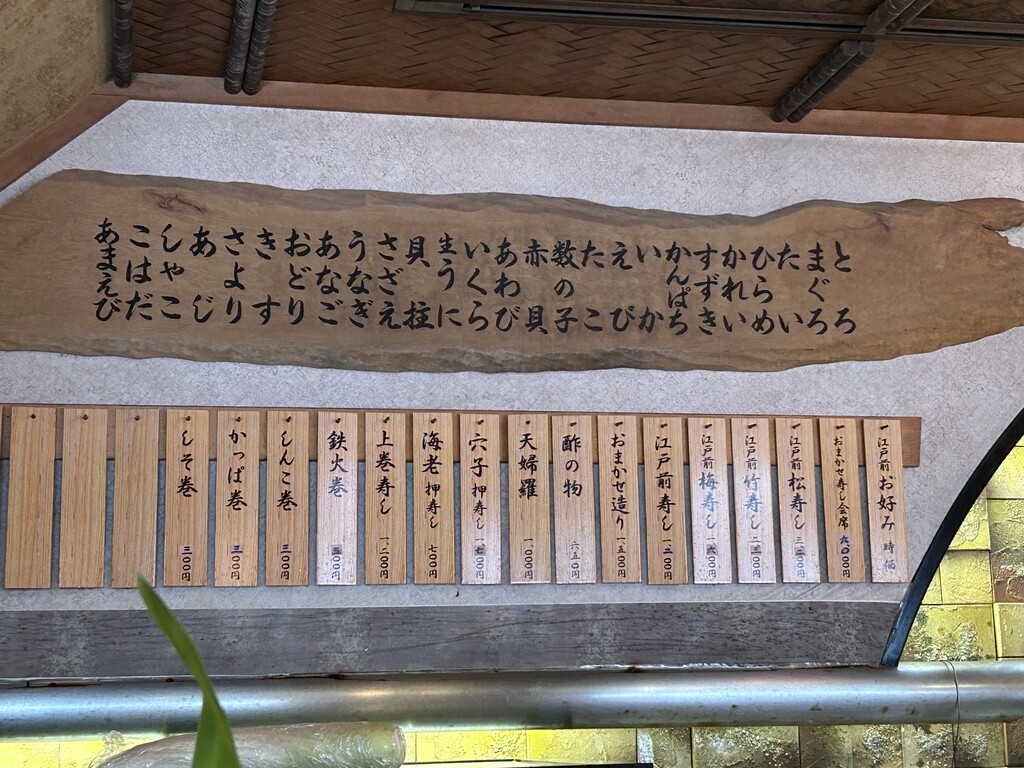 とろ
まぐろ
たい
ひらめ
かれい
すずき
かんぱち
いか
えび
たこ
数の子
赤貝
あわび
いくら
生うに
貝柱
さざえ
うなぎ
あなご
おどり
きす
さより
あじ
しゃこ
こはだ
あまえび
一江戸前お好み 時価
一おまかせ寿し会席 六、〇〇〇円
一江戸前松寿し
一江戸前竹寿し
一江戸前梅寿し
一江戸前寿し 一、二〇〇円
一おまかせ造り 一、五〇〇円
一酢の物 六五〇円
一天婦羅 一、〇〇〇円
一穴子押寿し
一海老押寿し 七〇〇円
一上巻寿し 一、二〇〇円
鉄火巻
しんこ巻 三〇〇円
かっぱ巻 三〇〇円
しそ巻 三〇〇円